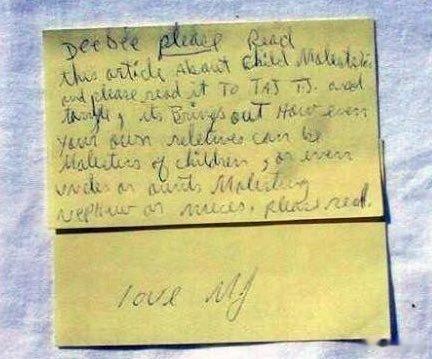 DeeDee please Read
this article About child Molestation
and please read it TO TAJ T.J. and
, its Brings out How even
Your own relatives can be
Molesters of children, or even
uncles or aunts Molesting
nephew or nieces. please read.
love MJ